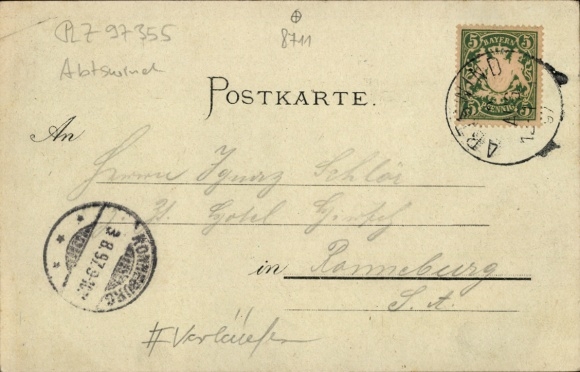 PLZ 97355
8711
Abtswind
5 BAYERN 5
PFENNIG
ABTSWIND
POSTKARTE.
An
Herrn Ignaz Schlör
z. Zt. Hotel Hirsch
in Ronneburg
S. A.
RONNEBURG
3.8.97.